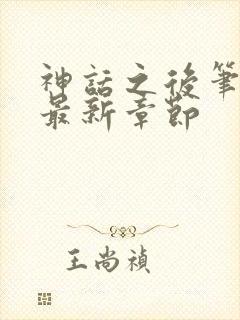 神話之後筆
最新章節
王尚禎